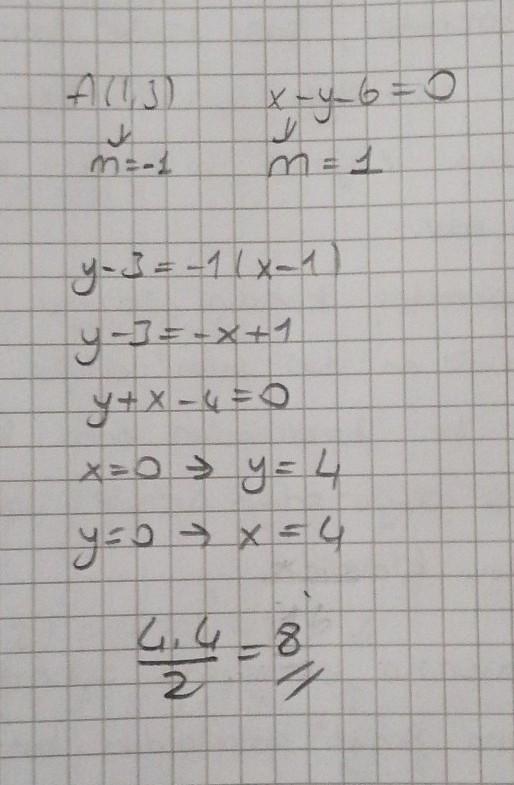 A(1,3) x-y-6=0
↓ ↓
m=-1 m=1
y-3=-1(x-1)
y-3=-x+1
y+x-4=0
x=0 → y=4
y=0 → x=4
4.4/2 = 8